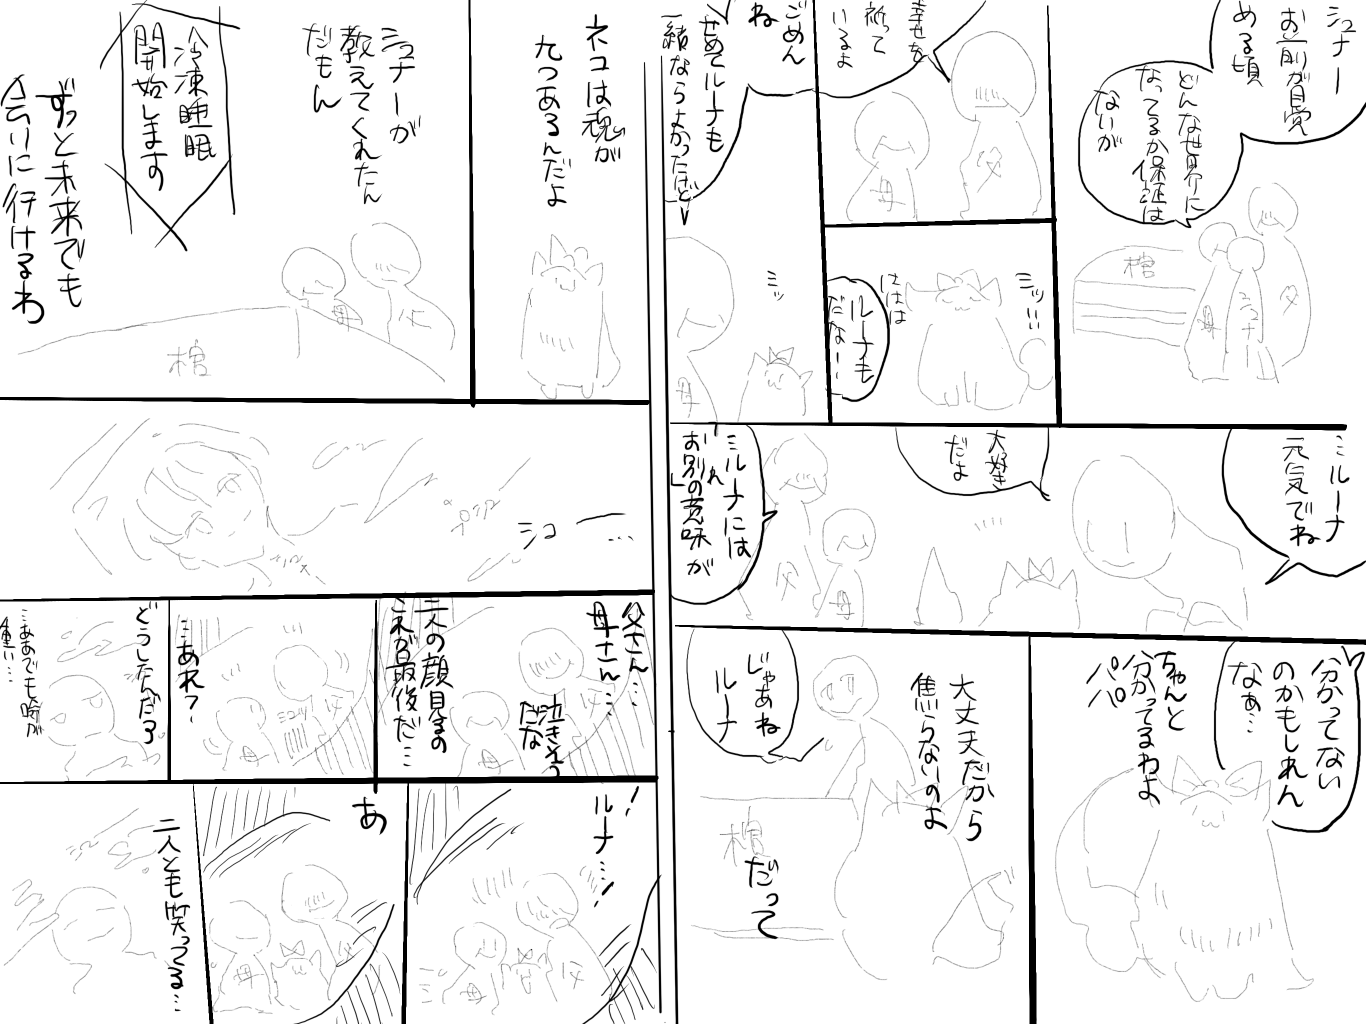 シュナー
お前が目覚
める頃
どんな世界に
なってるか保証は
ないが
棺
母
シュナ
父
幸せを
祈って
いるよ
母
父
ごめん
ね
せめてルーナも
一緒ならよかったけど
ミッ
母
ミッ!!!
ははは
ルーナも
だなー…
ミルーナ
元気でね
大好き
だよ
ミルーナには
お別れの意味が
父
母
分かってない
のかもしれん
なぁ…
ちゃんと
分かってるわよ
パパ
じゃあね
ルーナ
大丈夫だから
焦らないのよ
棺
だって
ネコは魂が
九つあるんだよ
シュナーが
教えてくれたん
だもん
冷凍睡眠
開始します
ずっと未来でも
会いに行けるわ
母
父
棺
プシュー
シュー…
父さん…
母さん…
泣きそう
だな
二人の顔見るの
これが最後だ…
母
…あれ?
母
父
どうしたんだろ
…ああでも瞼が
重い…
ルーナ…!
母
父
あ
母
父
二人とも笑ってる…